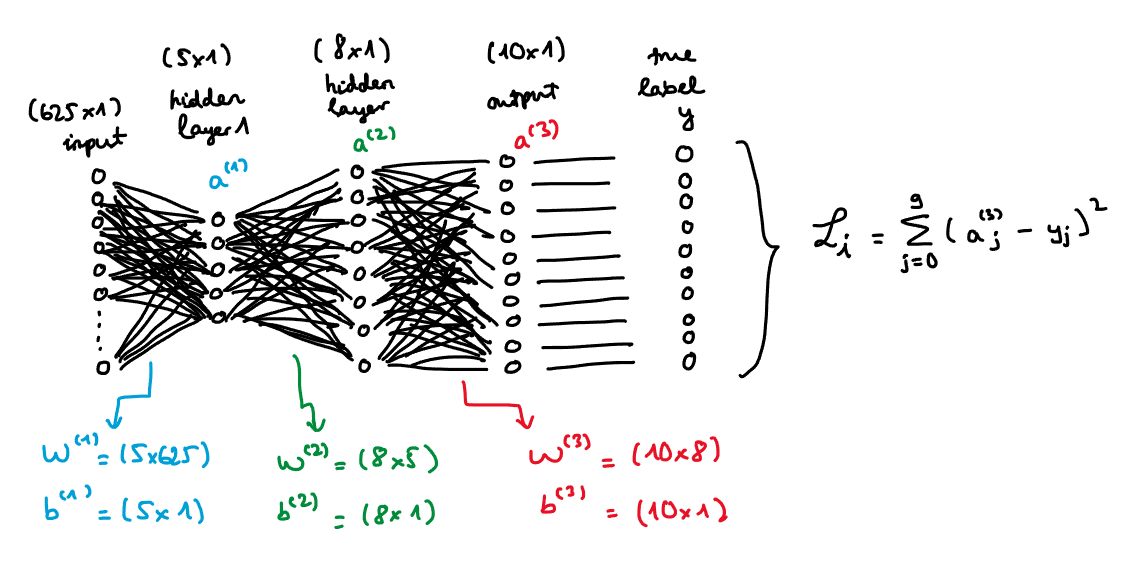 (625x1)
input
(5x1)
hidden
layer1
a(1)
(8x1)
hidden
layer
a(2)
(10x1)
output
a(3)
true
label
y
ℒi = ∑ 9 j=0 (aj(3) - yj)2
w(1) = (5x625)
b(1) = (5x1)
w(2) = (8x5)
b(2) = (8x1)
w(3) = (10x8)
b(3) = (10x1)